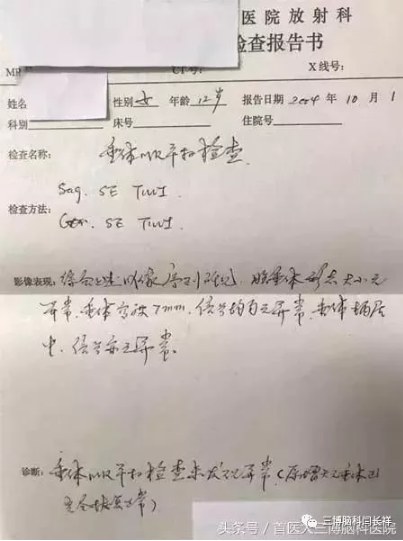 医院放射科
检查报告书
MR CT号: X线号:
姓名 性别 女 年龄 12岁 报告日期 2004年10月1
科别 床号 住院号
检查名称: 垂体MR平扫检查
Sag. SE T1WI.
检查方法:
Cor. SE T1WI.
影像表现: 综合上述成像序列所见,脑垂体形态大小无
异常,垂体高径7mm,信号均匀无异常,垂体柄居
中,信号亦无异常。
诊断: 垂体MR平扫检查未发现异常(原增大之垂体已
完全恢复正常)
三博脑科闫长祥
头条号/首医大三博脑科医院